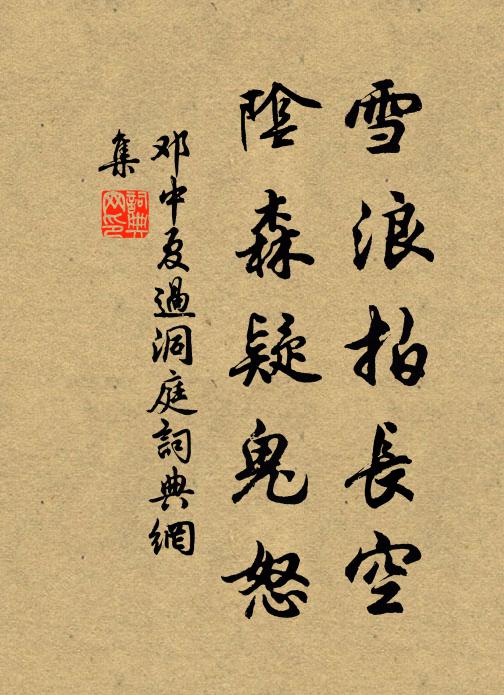 雪浪拍長空
陰森疑鬼怒
邓中夏過洞庭詞典網
集
詞典网印